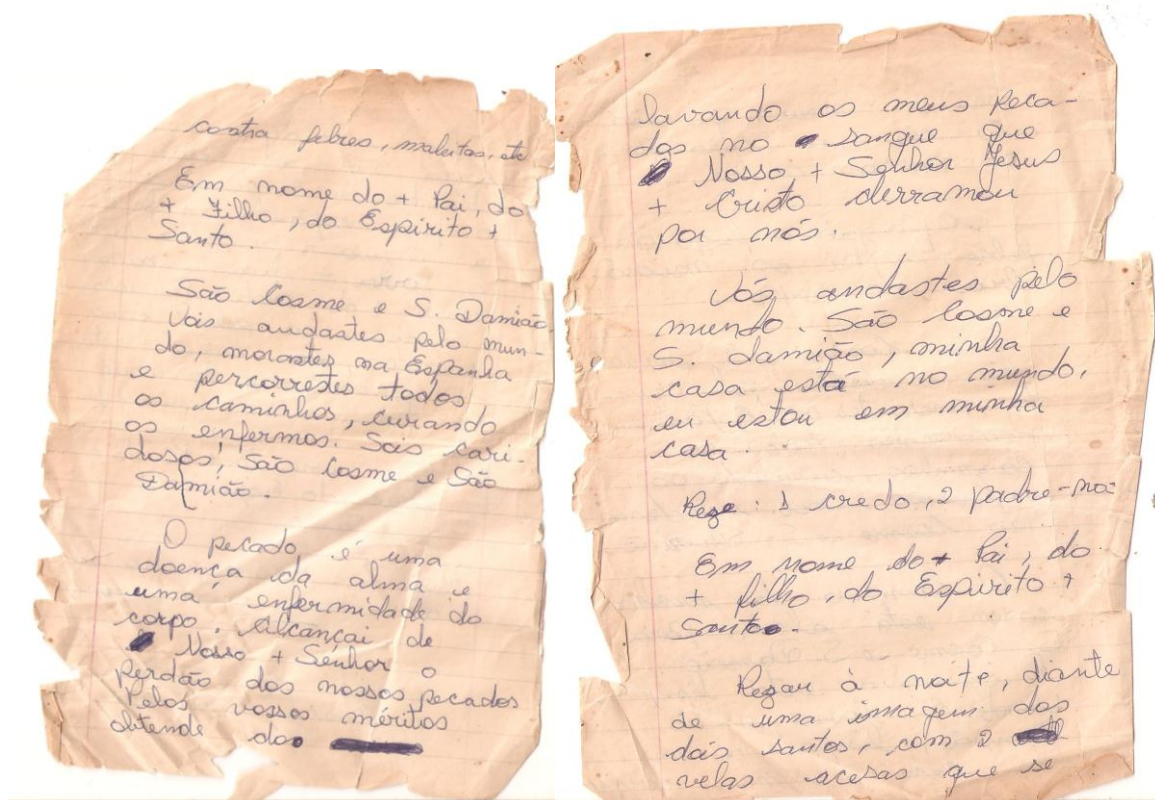 contra febres, maleitas, etc
Em nome do + Pai, do
+ Filho, do Espírito +
Santo.
São Cosme e S. Damião,
vois andastes pelo mun-
do, morastes na Espanha
e percorrestes todos
os caminhos, curando
os enfermos. Sois cari-
dosos, São Cosme e São
Damião.
O pecado é uma
doença da alma e
uma enfermidade do
corpo. Alcançai de
Nosso + Senhor o
perdão dos nossos pecados
Pelos vossos méritos
obtende do
lavando os meus peca-
dos no sangue que
Nosso + Senhor Jesus
+ Cristo derramou
por nós.
Vós andastes pelo
mundo. São Cosme e
S. Damião, minha
casa está no mundo,
eu estou em minha
casa.
Reze: 1 credo, 2 padre-no
Em nome do + Pai, do
+ filho, do Espírito +
Santo.
Rezar à noite, diante
de uma imagem dos
dois santos, com 2
velas acesas que se